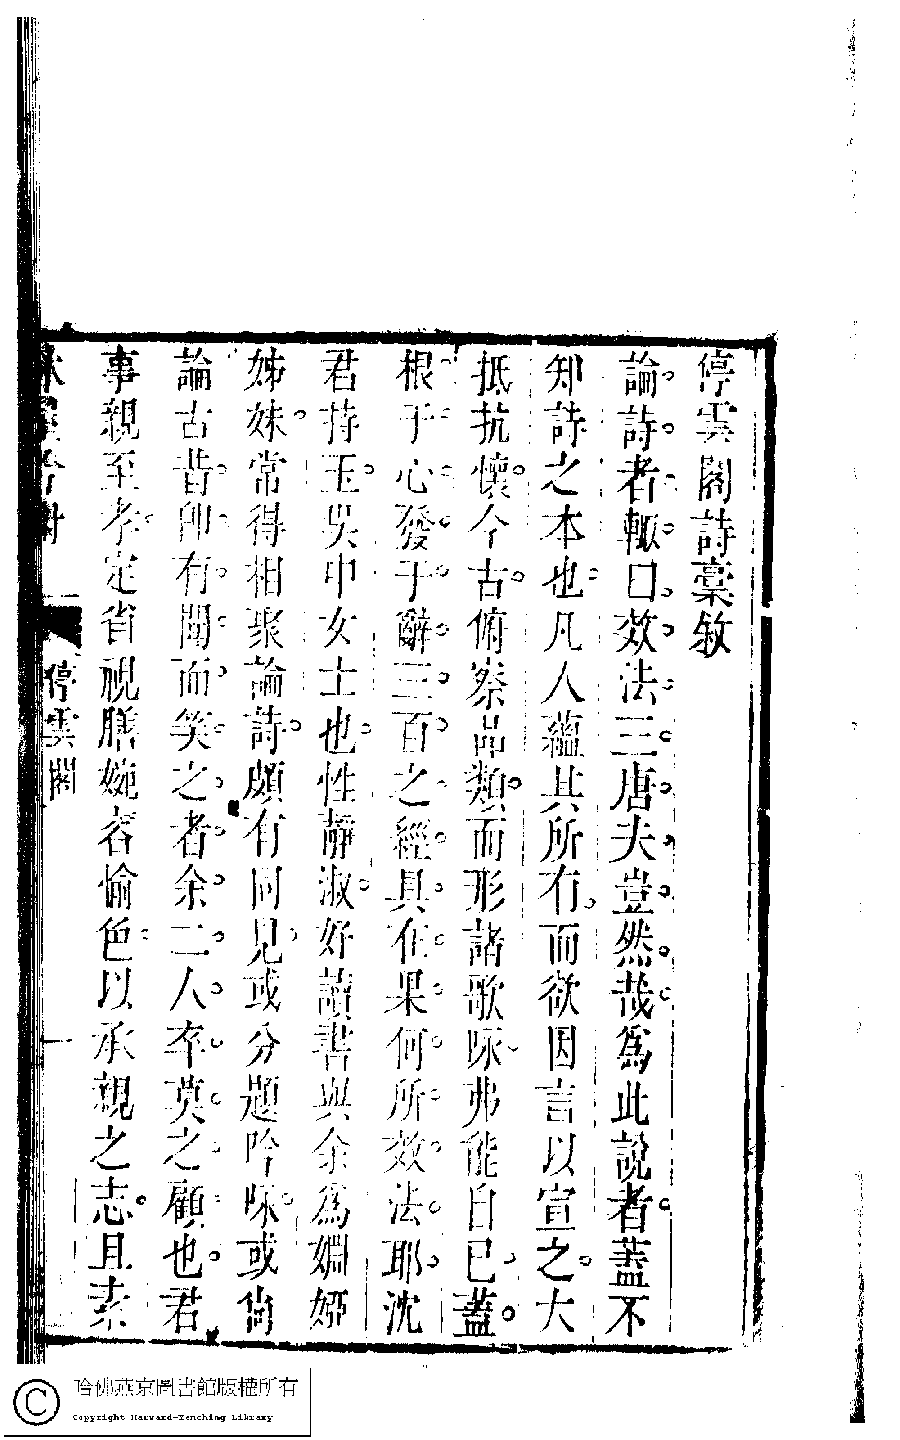 停雲閣詩藁敘
論詩者輙曰效法三唐夫豈然哉為此說者蓋不
知詩之本也凡人蘊其所有而欲因言以宣之大
抵抗懷今古俯察品類而形諸歌咏弗能自已蓋
根于心發于辭三百之經具在果何所效法耶沈
君持玉吳中女士也性靜淑好讀書與余為姻婭
姊妹常得相聚論詩頗有同見或分題吟咏或尙
論古昔卽有聞而笑之者余二人卒莫之顧也君
事親至孝定省視膳婉容愉色以承親之志且素
停雲閣
哈佛燕京圖書館版權所有
Copyright Harvard-Yenching Library